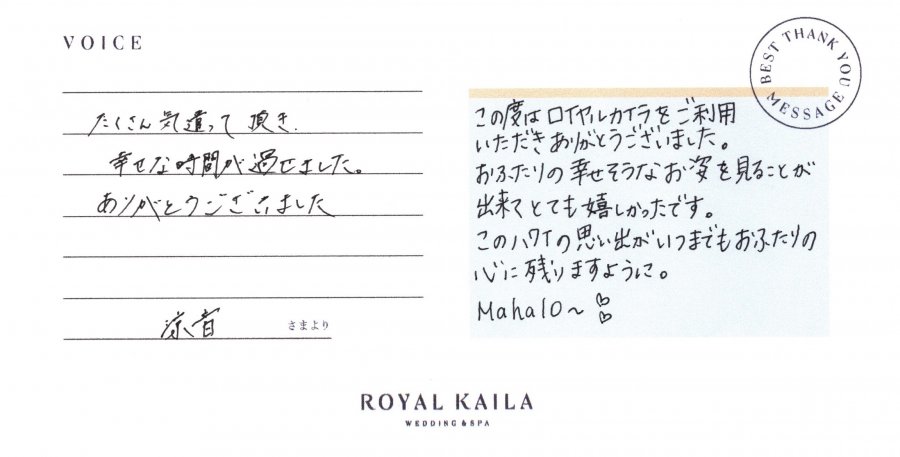 VOICE
たくさん気遣って頂き、
幸せな時間が過せました。
ありがとうございました
さまより
BEST THANK YOU MESSAGE
この度はロイヤルカイラをご利用
いただきありがとうございました。
おふたりの幸せそうなお姿を見ることが
出来てとても嬉しかったです。
このハワイの思い出がいつまでもおふたりの
心に残りますように。
Mahalo〜
ROYAL KAILA
WEDDING & SPA